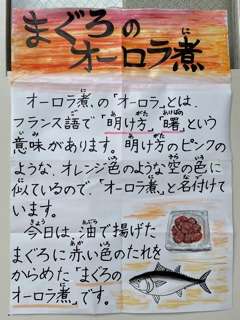 まぐろの
オーロラ煮
オーロラ煮、の「オーロラ」とは、
フランス語で「明け方」「曙」という
意味があります。明け方のピンクの
ような、オレンジ色のような空の色に
似ているので、「オーロラ煮」と名付けて
います。
今日は、油で揚げた
まぐろに赤い色のたれを
からめた「まぐろの
オーロラ煮」です。